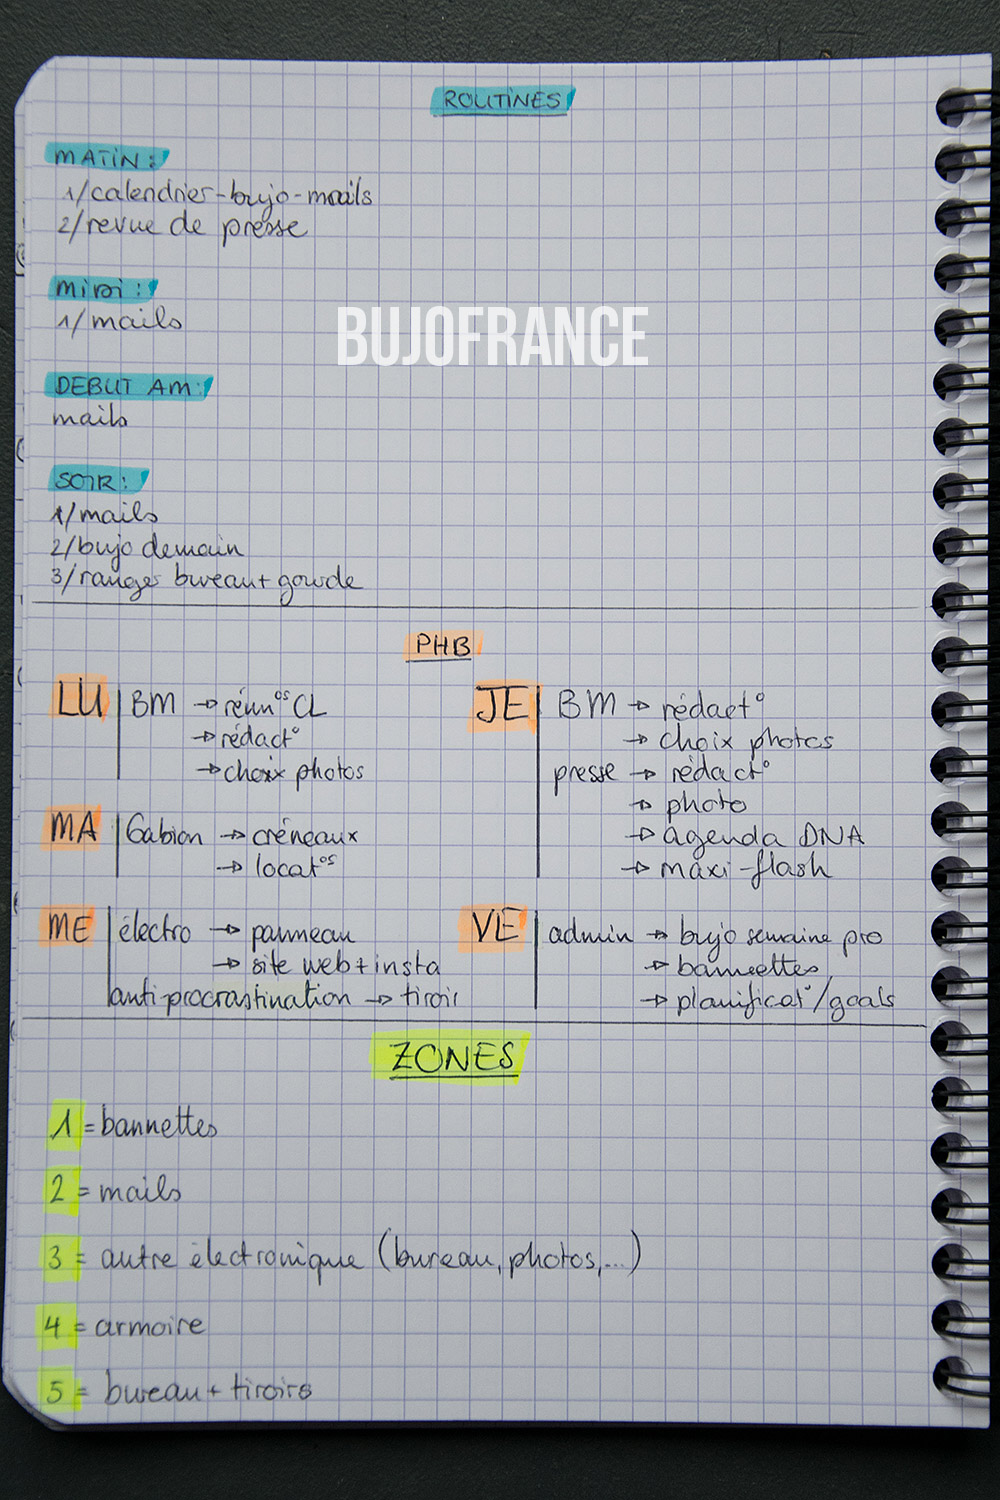 ROUTINES
MATIN :
1/calendrier-bujo-mails
2/revue de presse
MIDI :
1/mails
BUJOFRANCE
DEBUT AM:
mails
SOIR :
1/mails
2/bujo demain
3/ranger bureau+gourde
PHB
LU BM → réun°s CL
→ rédact°
→ choix photos
MA Gabion → créneaux
→ locat°s
ME électro → panneau
→ site web+insta
anti-procrastination → tiroir
JE BM → rédact°
→ choix photos
presse → rédact°
→ photo
→ agenda DNA
→ maxi-flash
VE admin → bujo semaine pro
→ bannettes
→ planificat°/goals
ZONES
1 = bannettes
2 = mails
3 = autre électronique (bureau, photos,...)
4 = armoire
5 = bureau + tiroirs